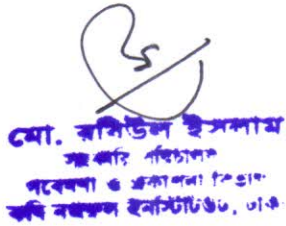 মো. রবিউল ইসলাম
সহকারি পরিচালক
গবেষণা ও প্রকাশনা বিভাগ
কবি নজরুল ইনস্টিটিউট, ঢাকা